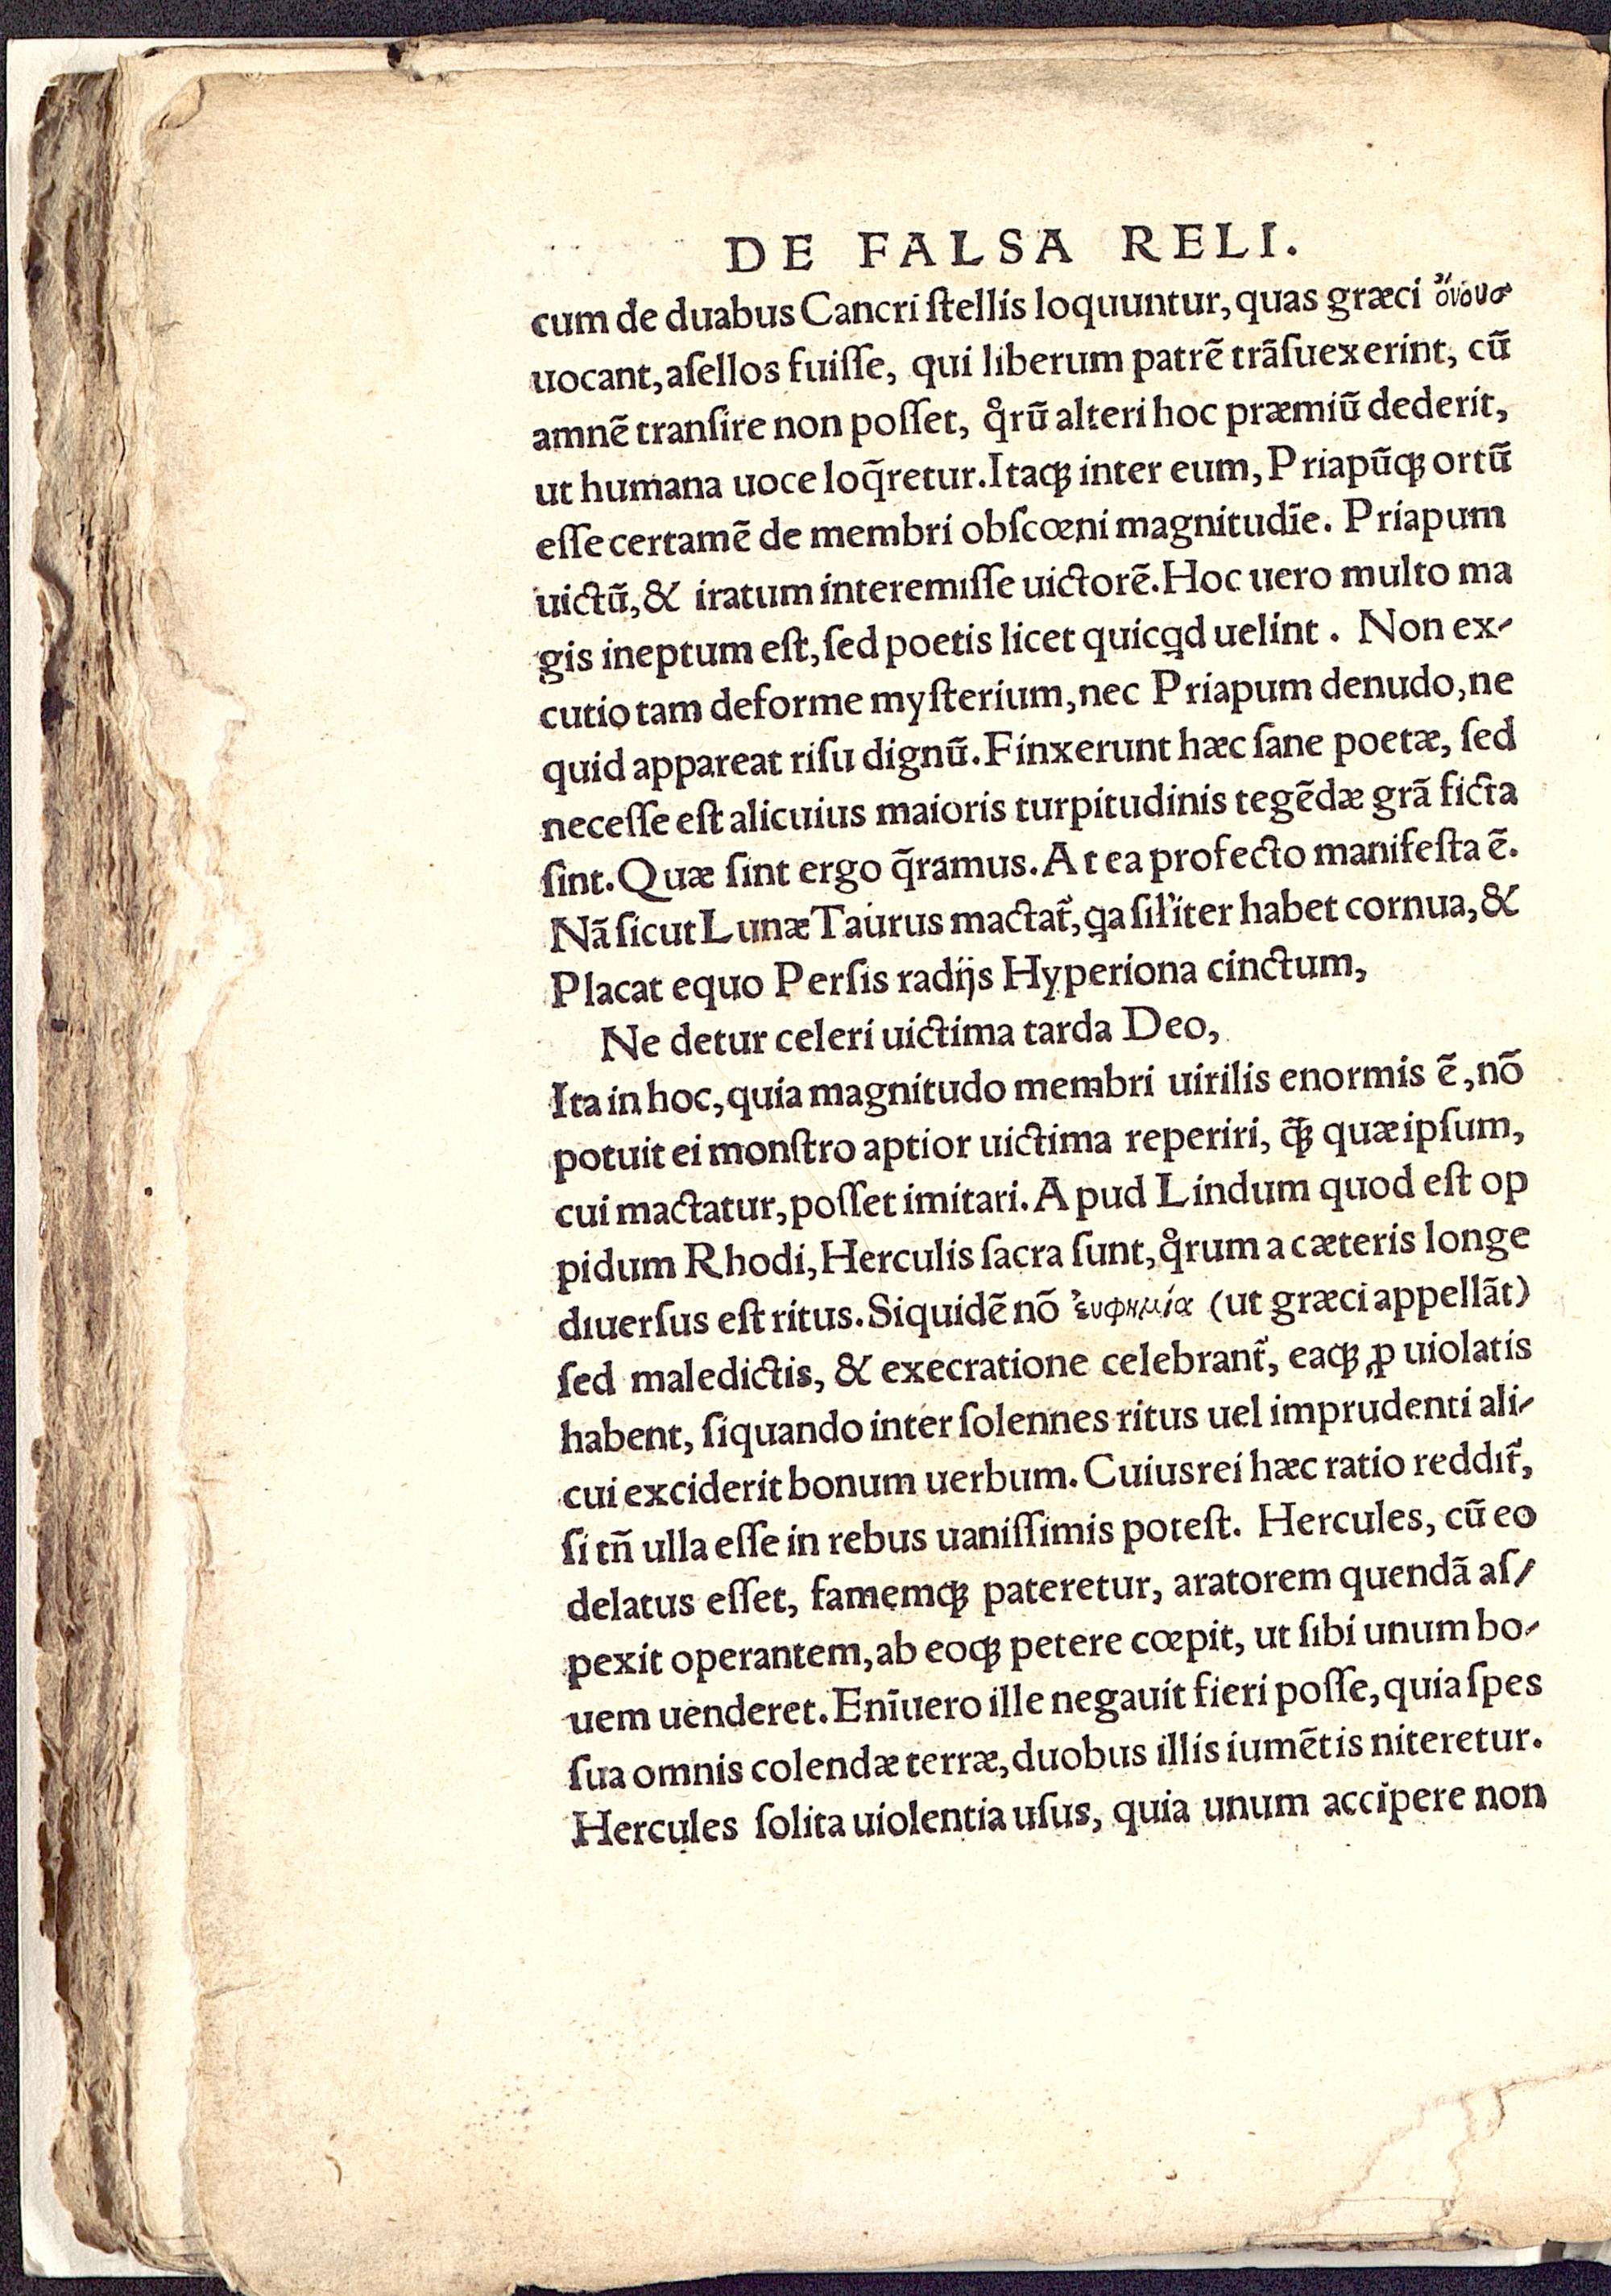 DE FALSA RELI.
cum de duabus Cancri ſtellis loquuntur, quas græci ὄνουσ
uocant, aſellos fuiſſe, qui liberum patrẽ trãſuexerint, cũ
amnẽ tranſire non poſſet, qͦrũ alteri hoc præmiũ dederit,
ut humana uoce loq̃retur. Itaqꝫ inter eum, Priapũqꝫ ortũ
eſſe certamẽ de membri obſcœni magnitudĩe. Priapum
uictũ, & iratum interemiſſe uictorẽ. Hoc uero multo ma
gis ineptum eſt, ſed poetis licet quicꝗd uelint. Non ex-
cutio tam deforme myſterium, nec Priapum denudo, ne
quid appareat riſu dignũ. Finxerunt hæc ſane poetæ, ſed
neceſſe eſt alicuius maioris turpitudinis tegẽdæ grã ficta
ſint. Quæ ſint ergo q̃ramus. At ea profecto manifeſta ẽ.
Nã ſicut Lunæ Taurus mactat᷑, ꝗa ſiľiter habet cornua, &
Placat equo Perſis radijs Hyperiona cinctum,
Ne detur celeri uictima tarda Deo,
Ita in hoc, quia magnitudo membri uirilis enormis ẽ, nõ
potuit ei monſtro aptior uictima reperiri, q̃ꝫ quæ ipſum,
cui mactatur, poſſet imitari. Apud Lindum quod eſt op
pidum Rhodi, Herculis ſacra ſunt, qͦrum a cæteris longe
diuerſus eſt ritus. Siquidẽ nõ ἐυφημία (ut græci appellãt)
ſed maledictis, & execratione celebrant᷑, eaqꝫ ꝓ uiolatis
habent, ſiquando inter ſolennes ritus uel imprudenti ali-
cui exciderit bonum uerbum. Cuius rei hæc ratio reddit᷑,
ſi tñ ulla eſſe in rebus uaniſſimis poteſt. Hercules, cũ eo
delatus eſſet, famemqꝫ pateretur, aratorem quendã aſ/
pexit operantem, ab eoqꝫ petere cœpit, ut ſibi unum bo-
uem uenderet. Enĩuero ille negauit fieri poſſe, quia ſpes
ſua omnis colendæ terræ, duobus illis iumẽtis niteretur.
Hercules ſolita uiolentia uſus, quia unum accipere non